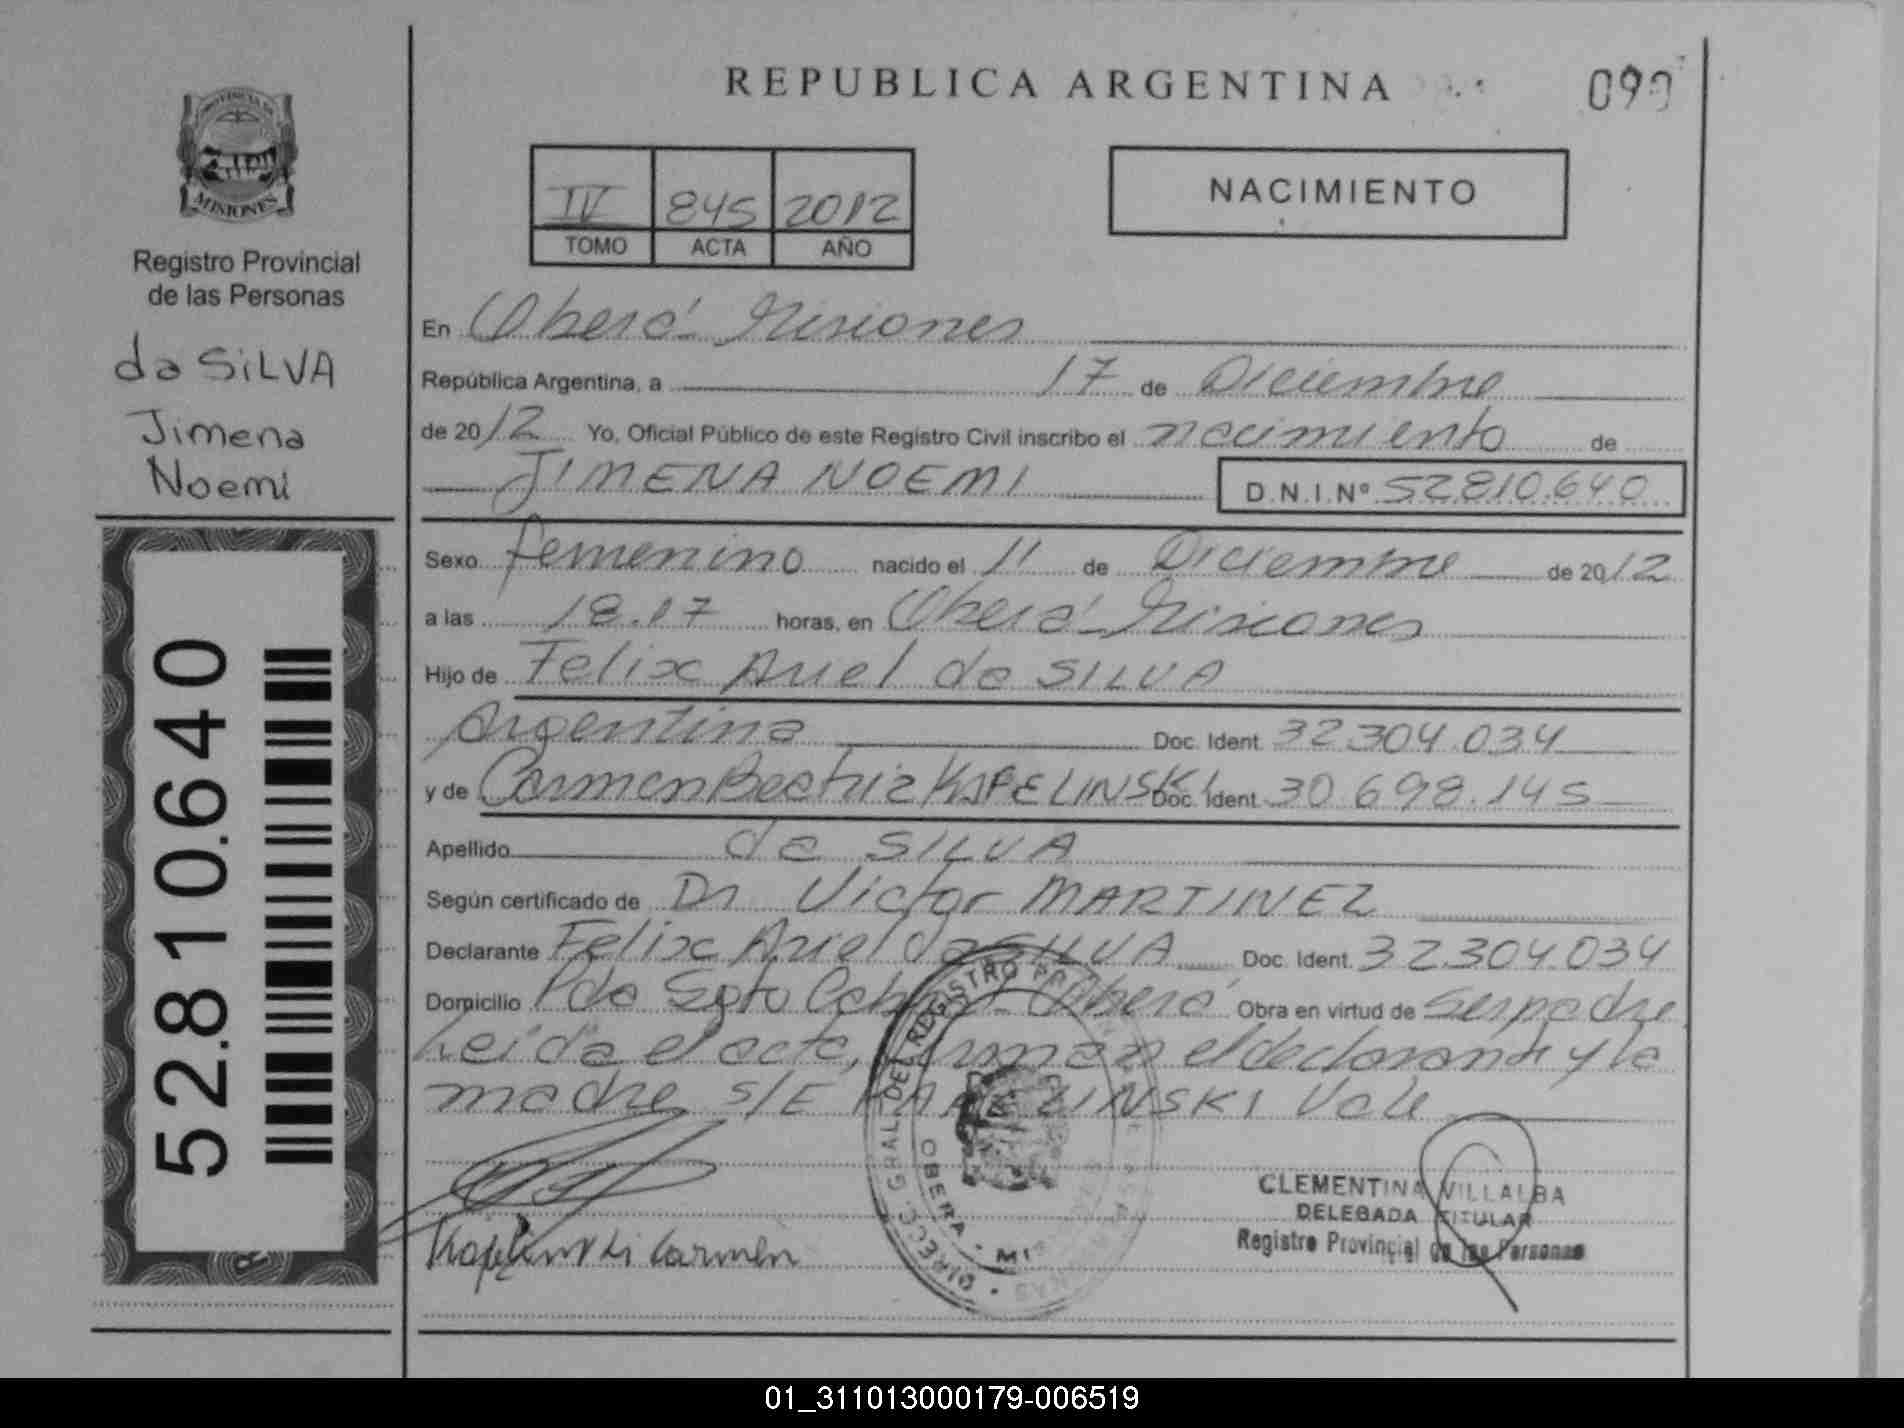 REPUBLICA ARGENTINA
PROVINCIA DE
MISIONES
Registro Provincial
de las Personas
da SiLVA
Jimena
Noemi
52.810.640
IV 845 2012
TOMO ACTA AÑO
NACIMIENTO
En Oberá - Misiones
República Argentina, a 17 de Diciembre
de 2012 Yo, Oficial Público de este Registro Civil inscribo el nacimiento de
JIMENA NOEMI D.N.I.Nº 52.810.640
Sexo femenino nacido el 11 de Diciembre de 2012
a las 18.17 horas, en Oberá - Misiones
Hijo de Felix Ariel da SILVA
Argentina Doc. Ident. 32.304.034
y de Carmen Beatriz KAPELINSKI Doc. Ident. 30.698.145
Apellido da SILVA
Según certificado de Dr. Victor MARTINEZ
Declarante Felix Ariel da SILVA Doc. Ident. 32.304.034
Domicilio Pdo Sgto Cabral - Oberá Obra en virtud de Ser padre
Leída el acta, firman el declarante y la
madre S/E KAPELINSKI Vale
Carmen
DIRECC. GRAL. DEL REGISTRO
OBERA
CLEMENTINA VILLALBA
DELEGADA TITULAR
Registro Provincial de las Personas
01_311013000179-006519